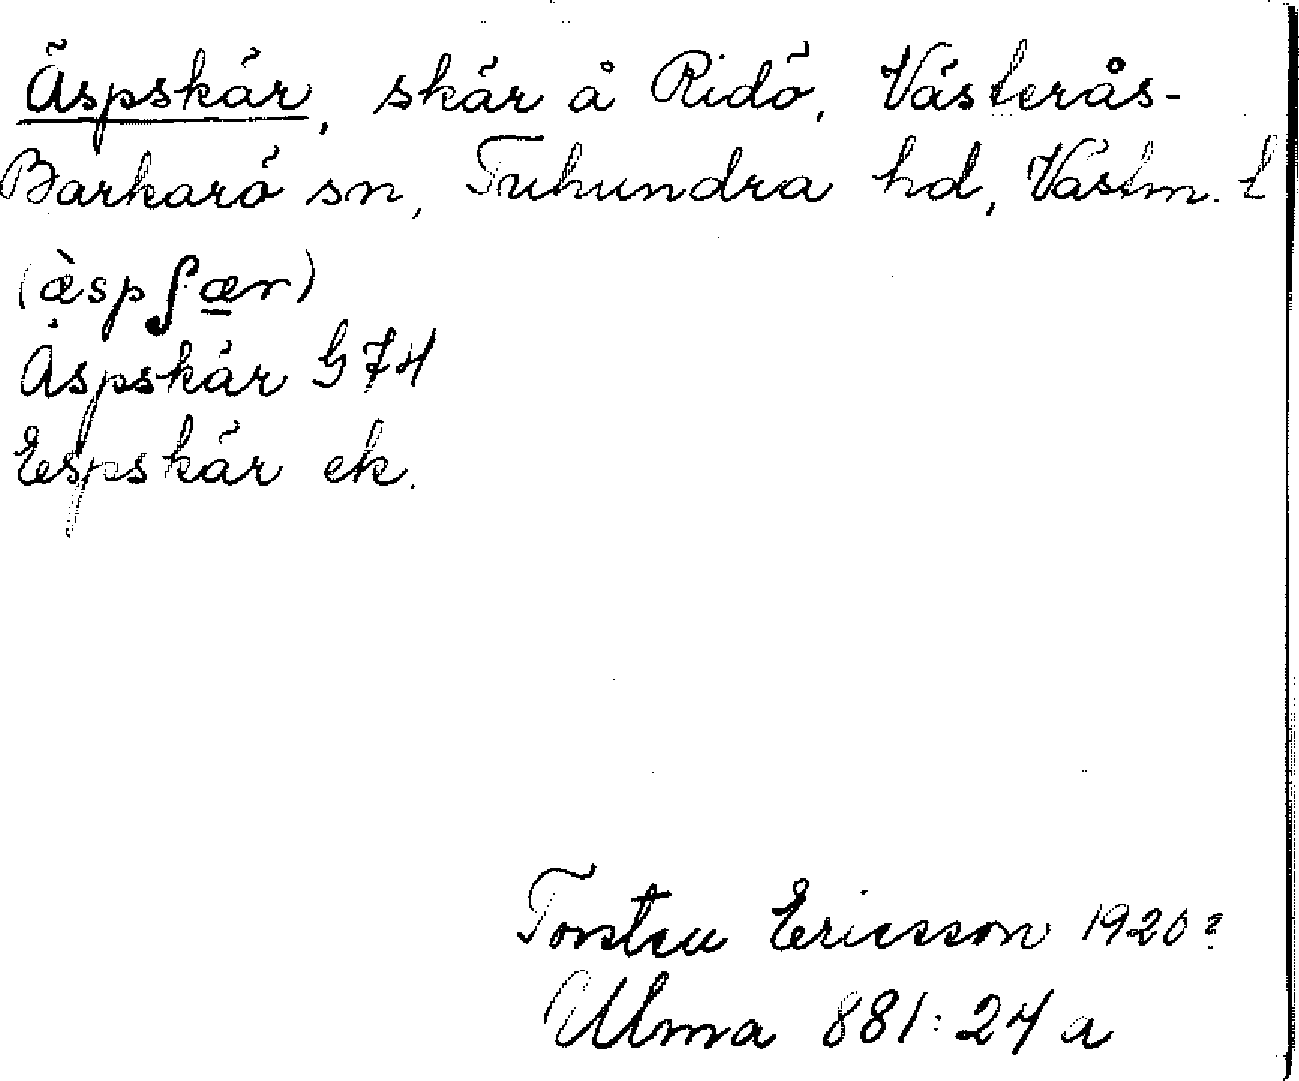 Äspskär, skär å Ridö, Västerås-
Barkarö sn, Tuhundra hd, Västm. l
(æ̀spʃæ̱r)
Äspskär G 74
Espskär ek.
Torsten Ericsson 1920?
Ulma 881:24 a